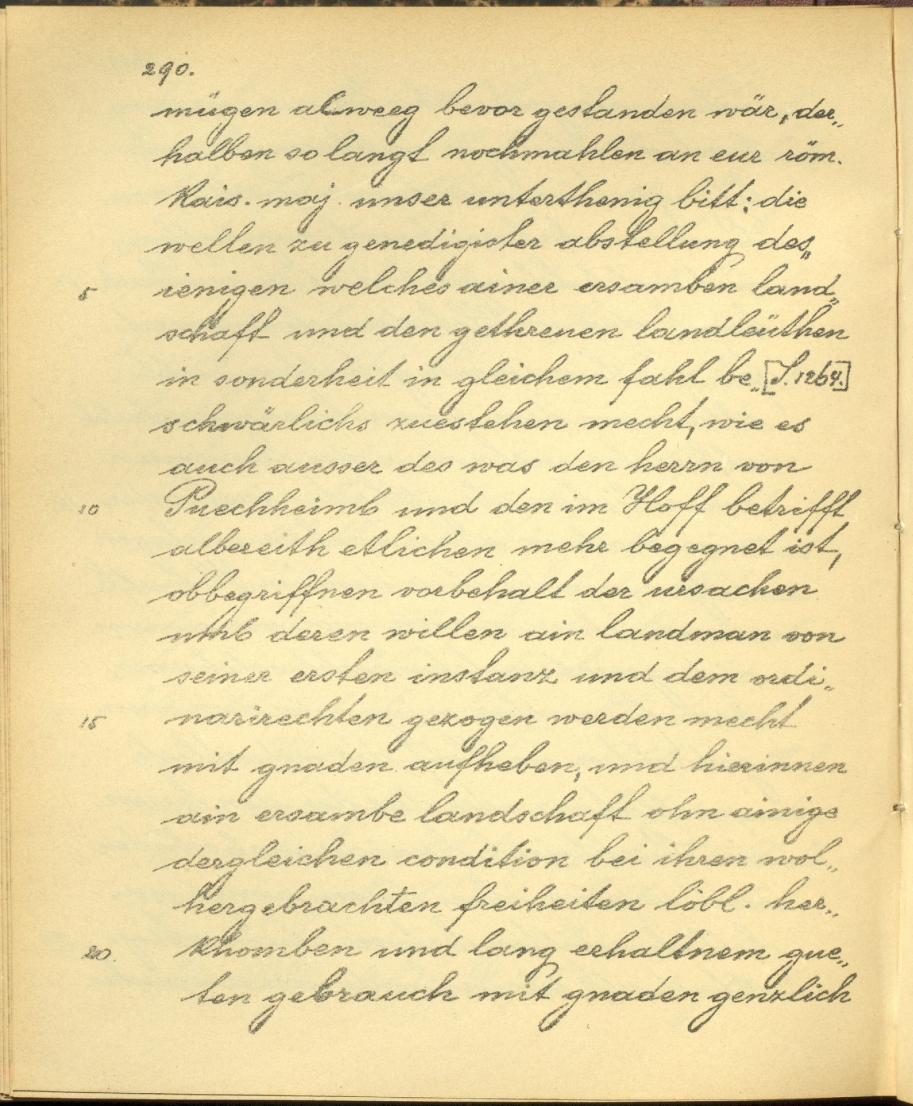 290.
mügen alweeg bevor gestanden wär, der„
halben so langt nochmahlen an eur röm.
Kais. maj. unser unterthenig bitt: die
wellen zu genedigister abstellung des„
5 ienigen welches ainer ersamben land„
schaft und den gethreuen landleüthen
in sonderheit in gleichem fahl be„ [S. 1264.]
schwärlichs zuestehen mecht, wie es
auch ausser des was den herrn von
10 Puechheimb und den im Hoff betrifft
albereith etlichen mehr begegnet ist,
obbegriffnen vorbehalt der ursachen
umb deren willen ain landman von
seiner ersten instanz und dem ordi„
15 narirechten gezogen werden mecht
mit gnaden aufheben, und hierinnen
ain ersambe landschaft ohn ainige
dergleichen condition bei ihren wol„
hergebrachten freiheiten löbl. her„
20. khomben und lang erhaltnem gue„
ten gebrauch mit gnaden genzlich